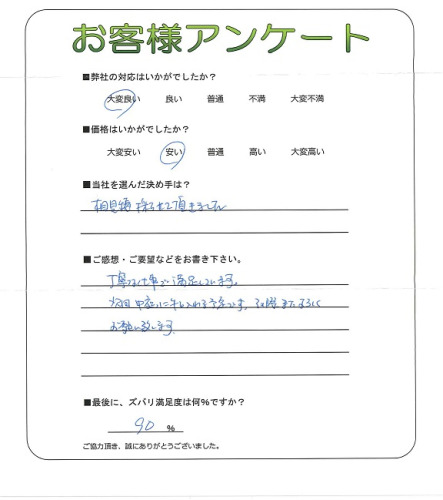 お客様アンケート
■弊社の対応はいかがでしたか？
大変良い 良い 普通 不満 大変不満
■価格はいかがでしたか？
大変安い 安い 普通 高い 大変高い
■当社を選んだ決め手は？
相見積 させて頂きました
■ご感想・ご要望などをお書き下さい。
丁寧な仕事で満足しています。
次回 中庭に手入れする予定です。その際またよろしく
お願い致します。
■最後に、ズバリ満足度は何％ですか？
90 %
ご協力頂き、誠にありがとうございました。